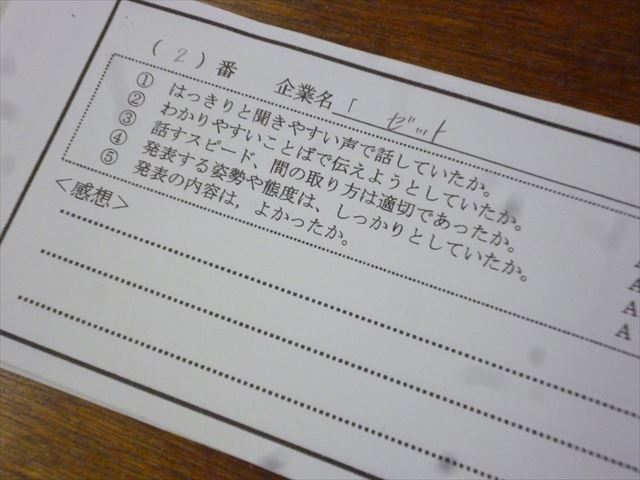 (2)番 企業名「ゼット
① はっきりと聞きやすい声で話していたか。
② わかりやすいことばで伝えようとしていたか。
③ 話すスピード、間の取り方は適切であったか。
④ 発表する姿勢や態度は、しっかりとしていたか。
⑤ 発表の内容は、よかったか。
A
A
A
A
<感想>